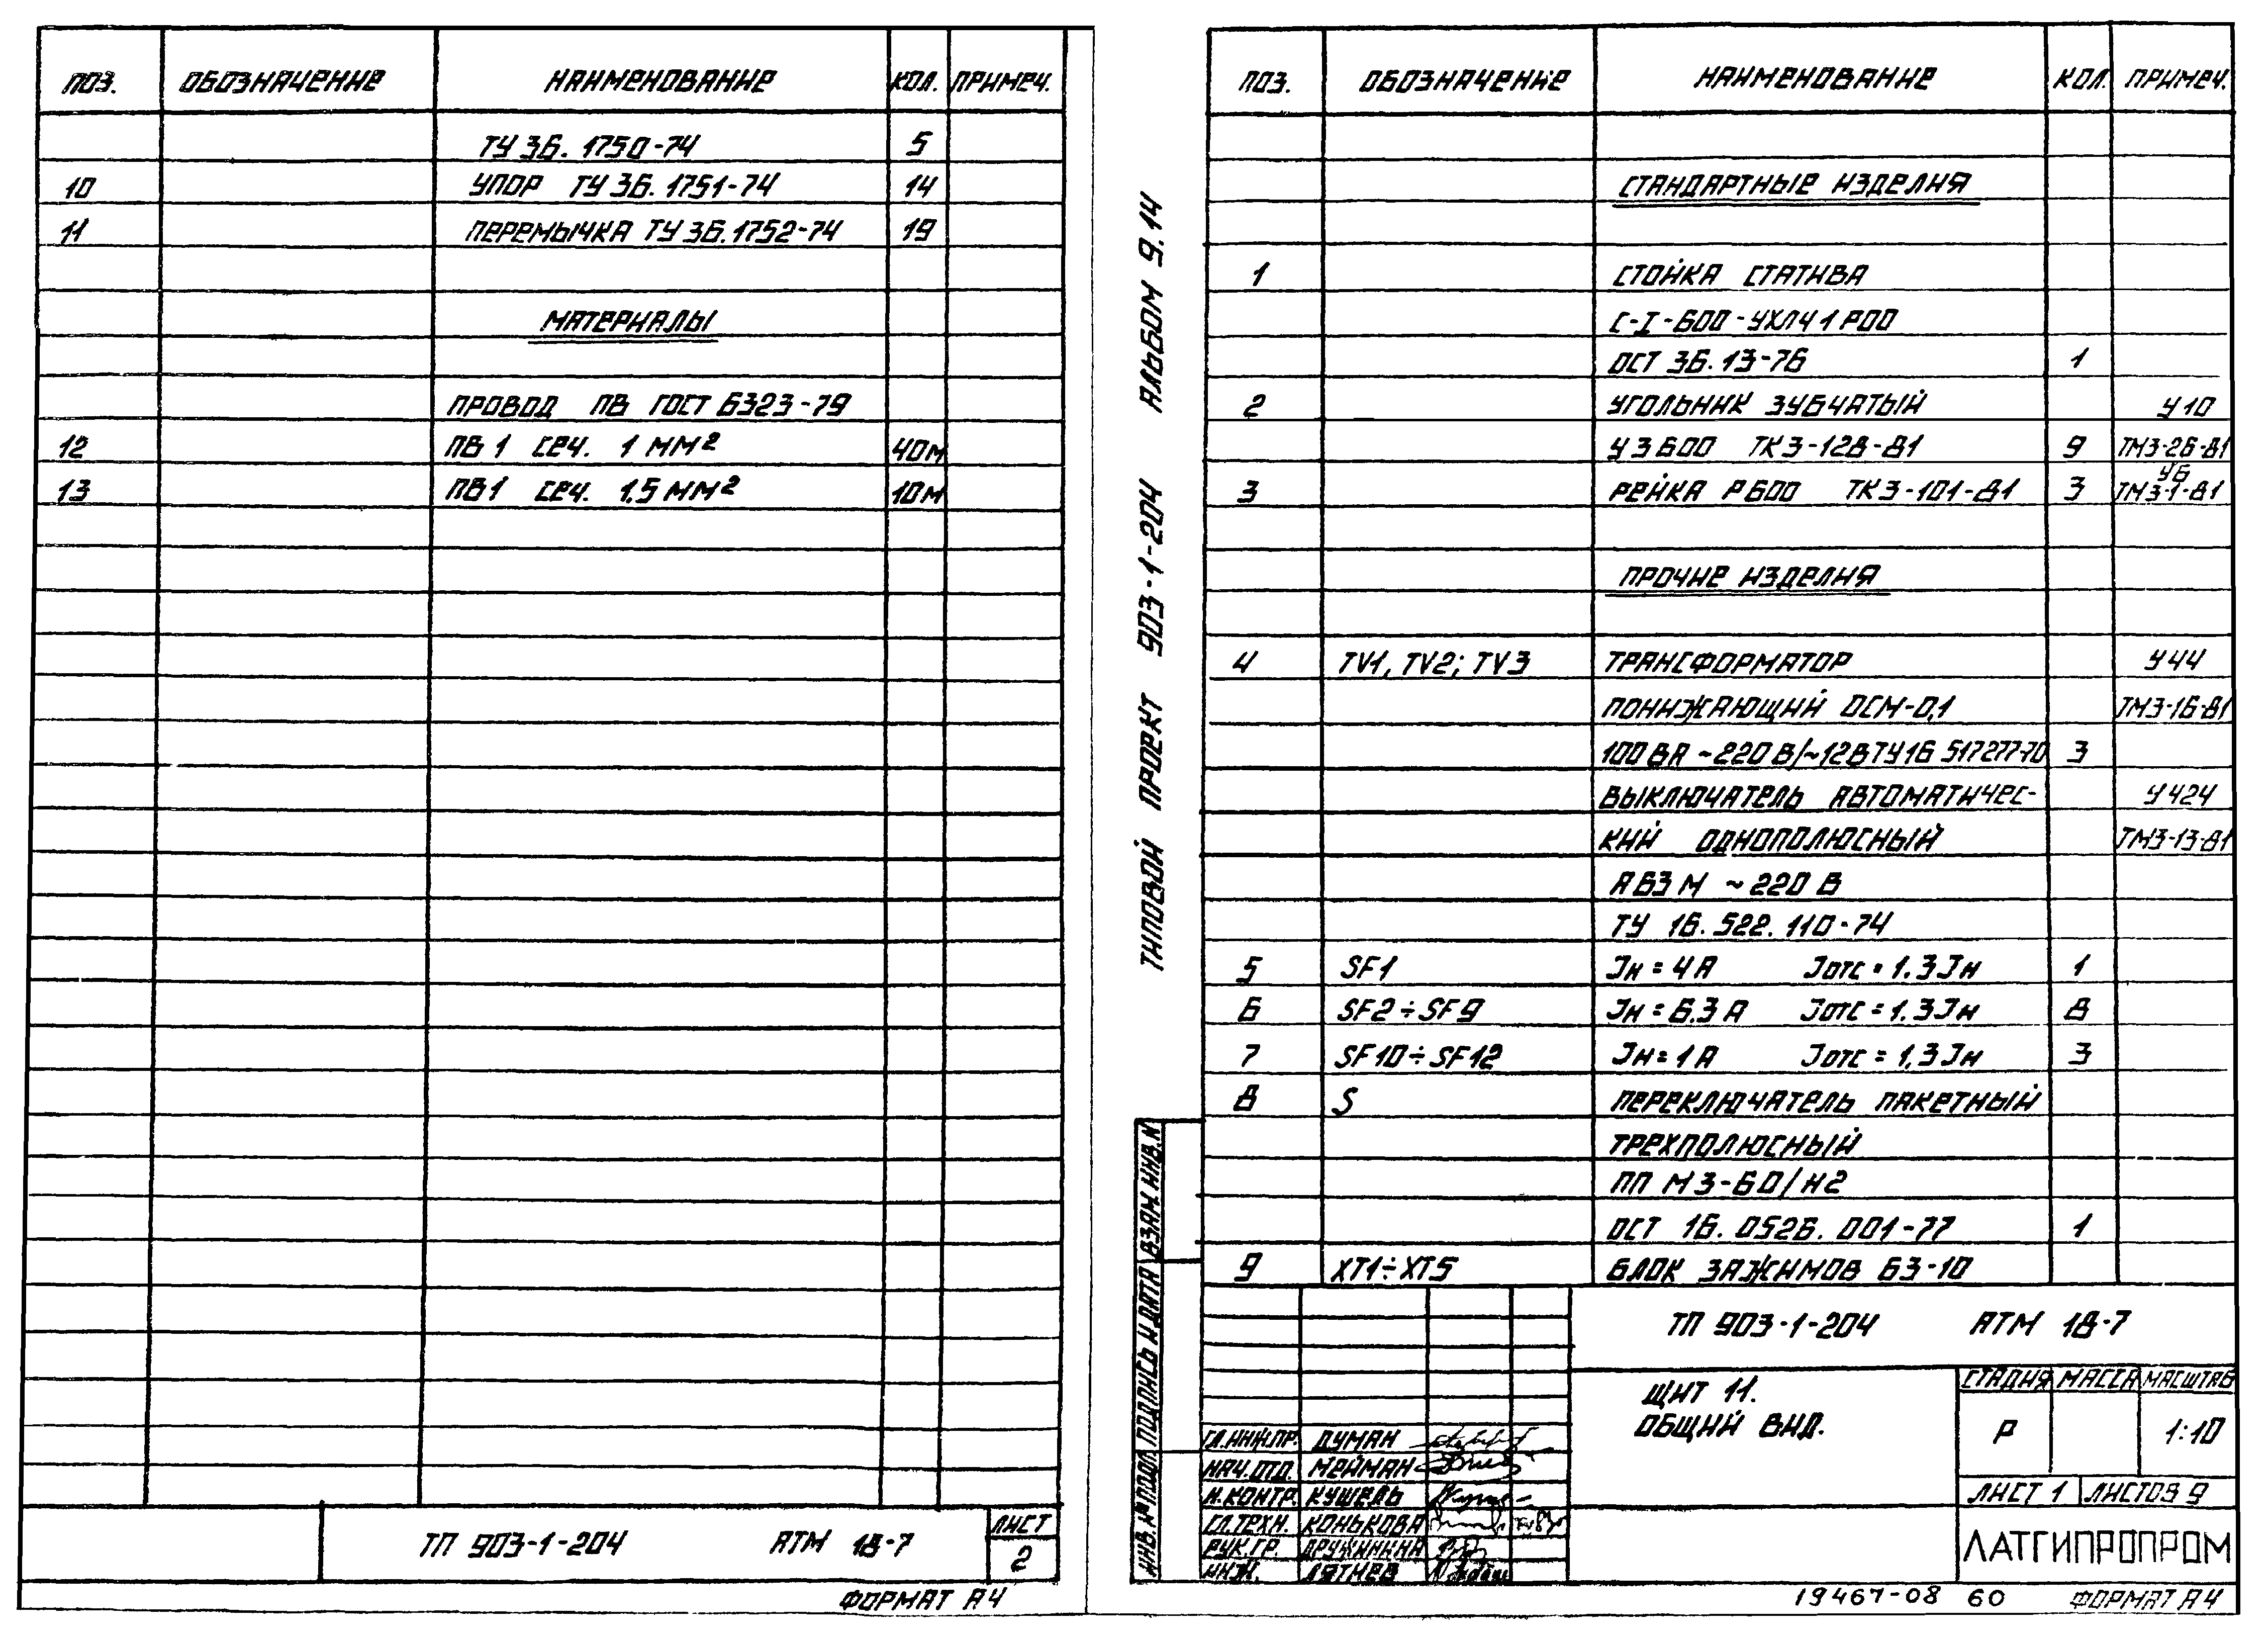 ПОЗ. ОБОЗНАЧЕНИЕ НАИМЕНОВАНИЕ КОЛ. ПРИМЕЧ.
ТУ 36.1750-74 5
10 УПОР ТУ 36.1751-74 14
11 ПЕРЕМЫЧКА ТУ 36.1752-74 19
МАТЕРИАЛЫ
ПРОВОД ПВ ГОСТ 6323-79
12 ПВ 1 СЕЧ. 1 ММ² 40М
13 ПВ1 СЕЧ. 1,5 ММ² 10М
ТП 903-1-204 АТМ 18-7
ЛИСТ
2
ФОРМАТ А4
ТИПОВОЙ ПРОЕКТ 903-1-204 АЛЬБОМ 9.14
ПОЗ. ОБОЗНАЧЕНИЕ НАИМЕНОВАНИЕ КОЛ. ПРИМЕЧ.
СТАНДАРТНЫЕ ИЗДЕЛИЯ
1 СТОЙКА СТАТИВА
С-I-600-УХЛ4 1Р00
ОСТ 36.13-76 1
2 УГОЛЬНИК ЗУБЧАТЫЙ У10
УЗ600 ТК3-128-81 9 ТМ3-26-81
3 РЕЙКА Р600 ТК3-101-81 3 У6 ТМ3-1-81
ПРОЧИЕ ИЗДЕЛИЯ
4 TV1, TV2; TV3 ТРАНСФОРМАТОР У44
ПОНИЖАЮЩИЙ ОСМ-0,1 ТМ3-16-81
100 ВА ~220 В/~12В ТУ16 517277-70 3
ВЫКЛЮЧАТЕЛЬ АВТОМАТИЧЕС- У424
КИЙ ОДНОПОЛЮСНЫЙ ТМ3-13-81
АБЗМ ~220 В
ТУ 16.522.110-74
5 SF1 Jн = 4А Jотс = 1.3Jн 1
6 SF2÷SF9 Jн = 6.3А Jотс = 1.3Jн 8
7 SF10÷SF12 Jн = 1А Jотс = 1,3Jн 3
8 S ПЕРЕКЛЮЧАТЕЛЬ ПАКЕТНЫЙ
ТРЕХПОЛЮСНЫЙ
ПП М3-60/Н2
ОСТ 16.0526.001-77 1
9 XT1÷XT5 БЛОК ЗАЖИМОВ БЗ-10
ИНВ. № ПОДЛ. ПОДПИСЬ И ДАТА ВЗАМ. ИНВ. N
ТП 903-1-204 АТМ 18-7
ЩИТ 11.
ОБЩИЙ ВИД.
СТАДИЯ МАССА МАСШТАБ
Р 1:10
ЛИСТ 1 ЛИСТОВ 9
ЛАТГИПРОПРОМ
ГЛ.ИНЖ.ПР. ДУМАН
НАЧ.ОТД. МЕЙМАН
Н.КОНТР. КУШЕЛЬ
ГЛ.ТЕХН. КОНЬКОВА
РУК.ГР. ДРУЖИНИНА
ИНЖ. ЛЯТИЕВ
19467-08 60 ФОРМАТ А4